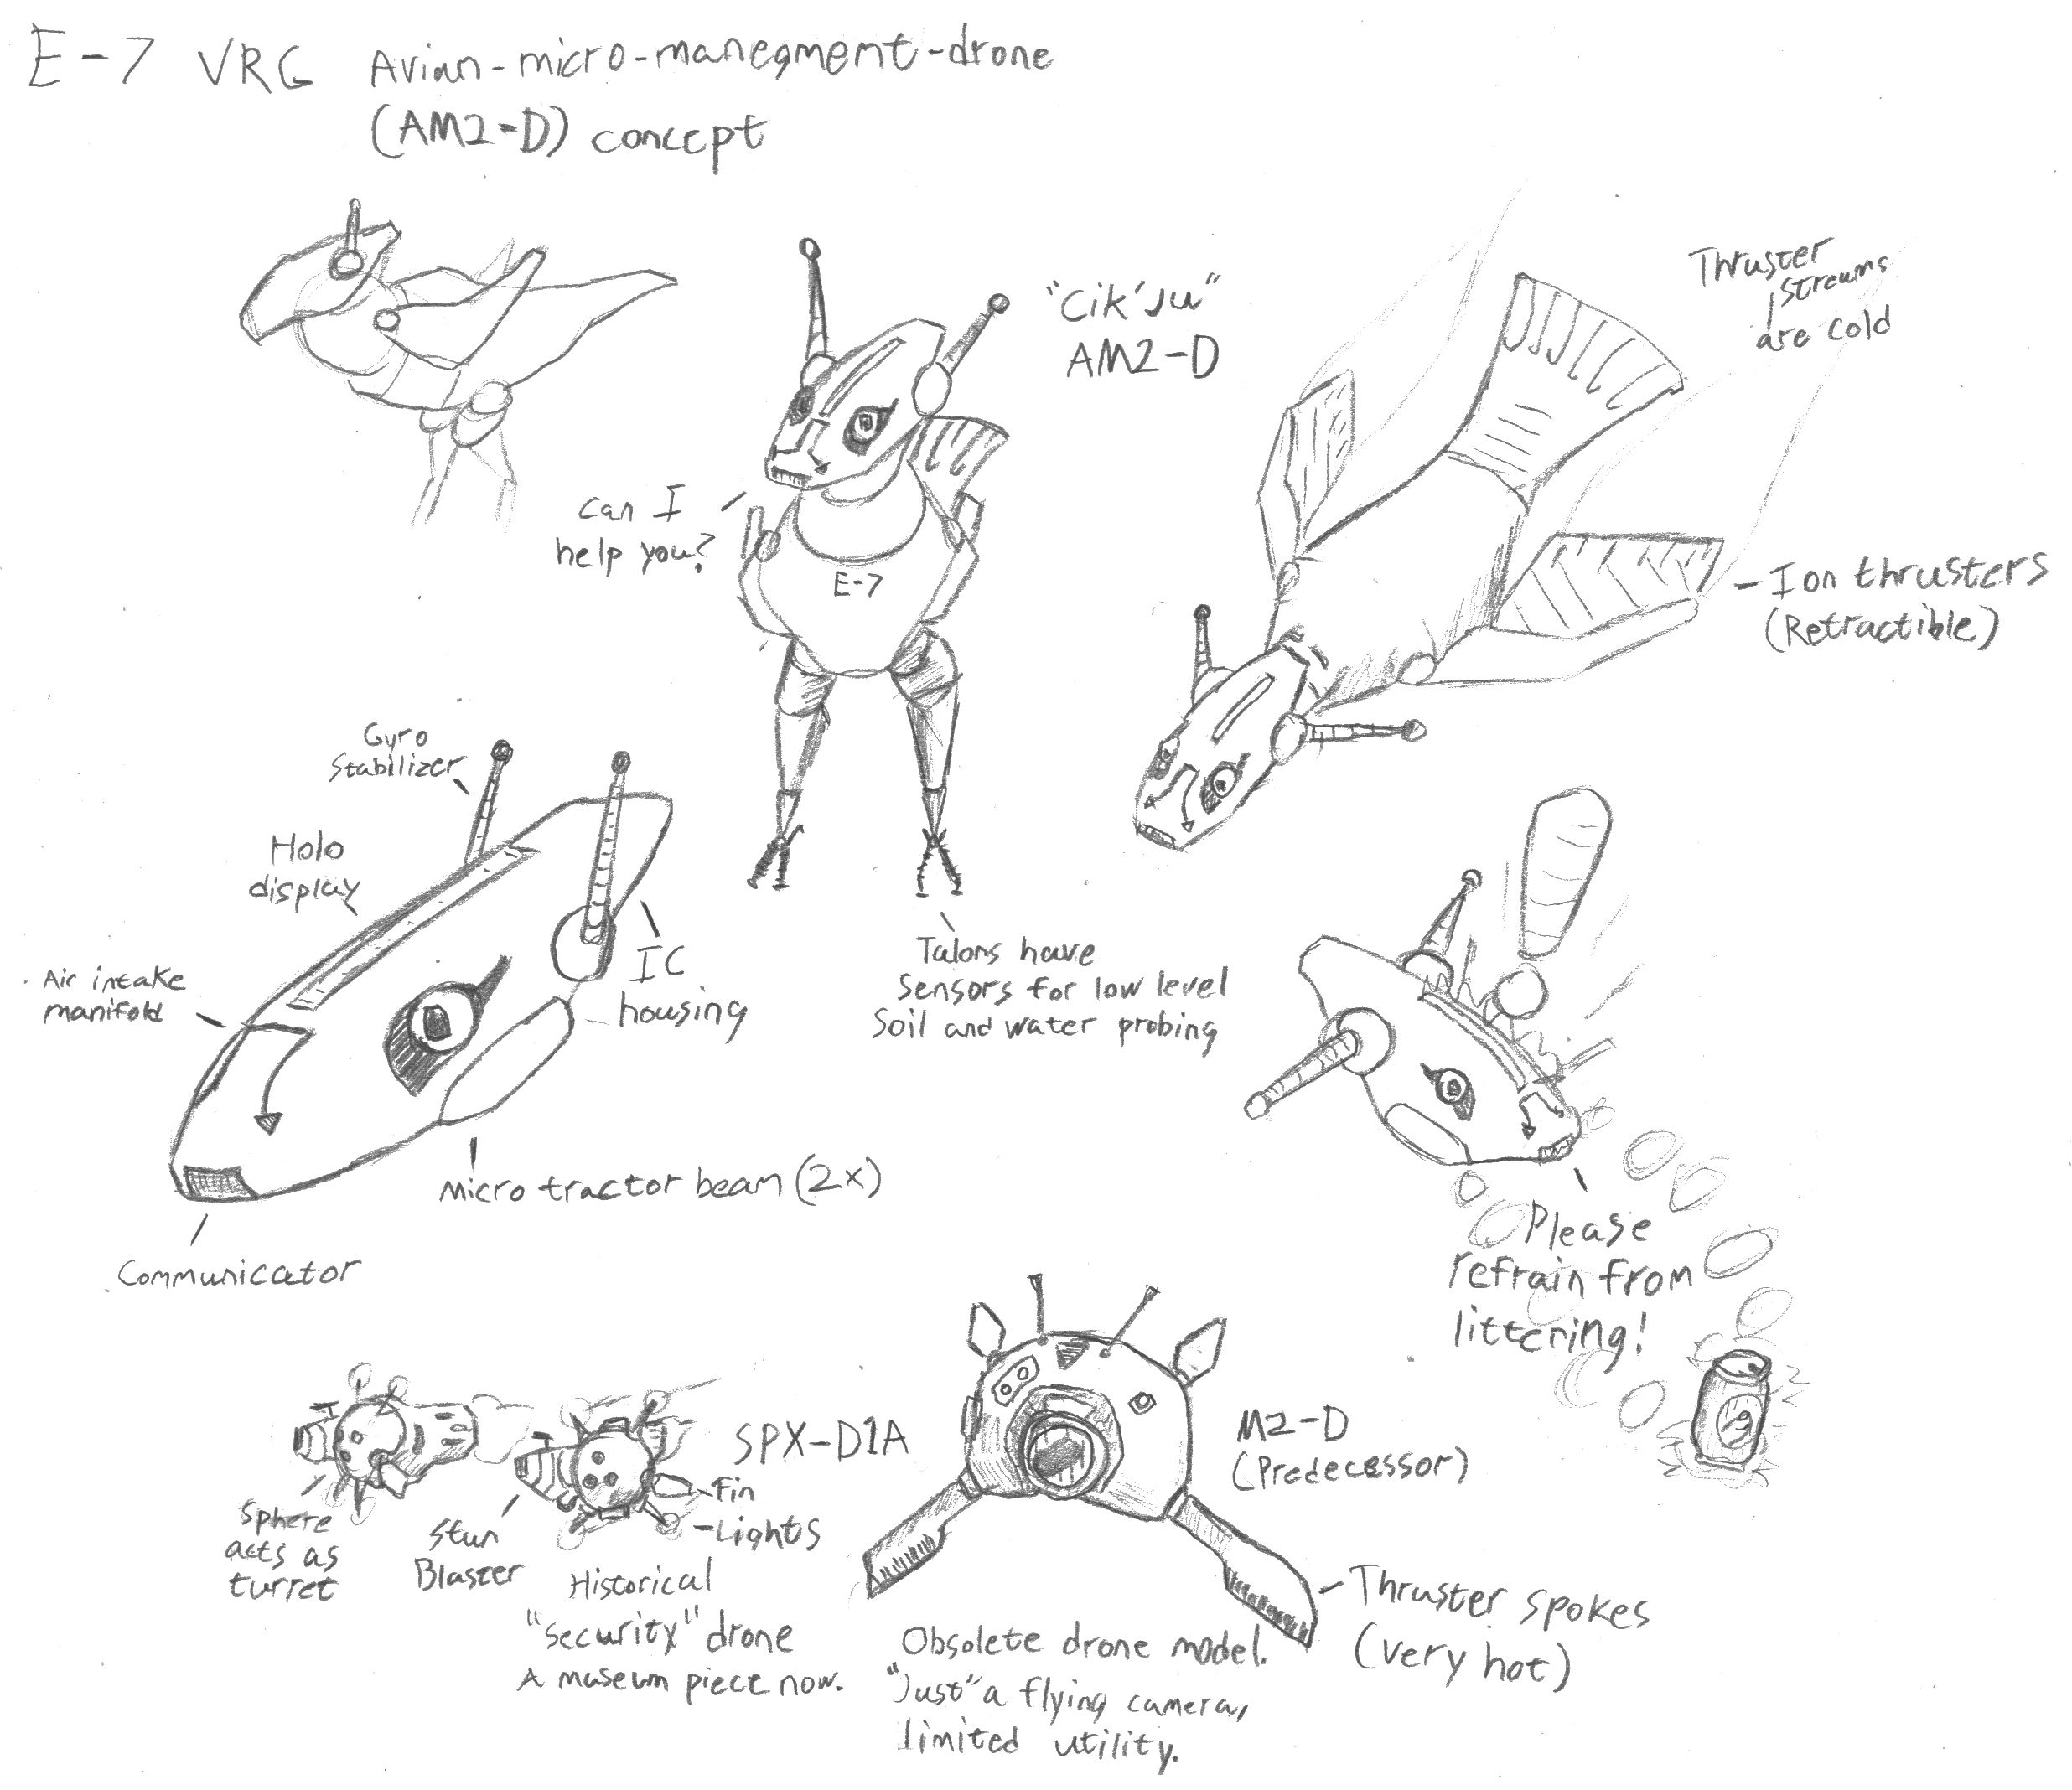 E-7 VRG Avian-micro-manegment-drone
(AM2-D) concept
"Cik'Ju"
AM2-D
Thruster
streams
are cold
Can I
help you?
E-7
-Ion thrusters
(Retractible)
Gyro
Stabilizer
Holo
display
Air intake
manifold
IC
housing
Talons have
sensors for low level
soil and water probing
Micro tractor beam (2x)
Communicator
Please
refrain from
littering!
SPX-D1A
Fin
Lights
Sphere
acts as
turret
Stun
Blaster
Historical
"security" drone
A museum piece now.
M2-D
(Predecessor)
Thruster spokes
(very hot)
Obsolete drone model.
"Just" a flying camera,
limited utility.